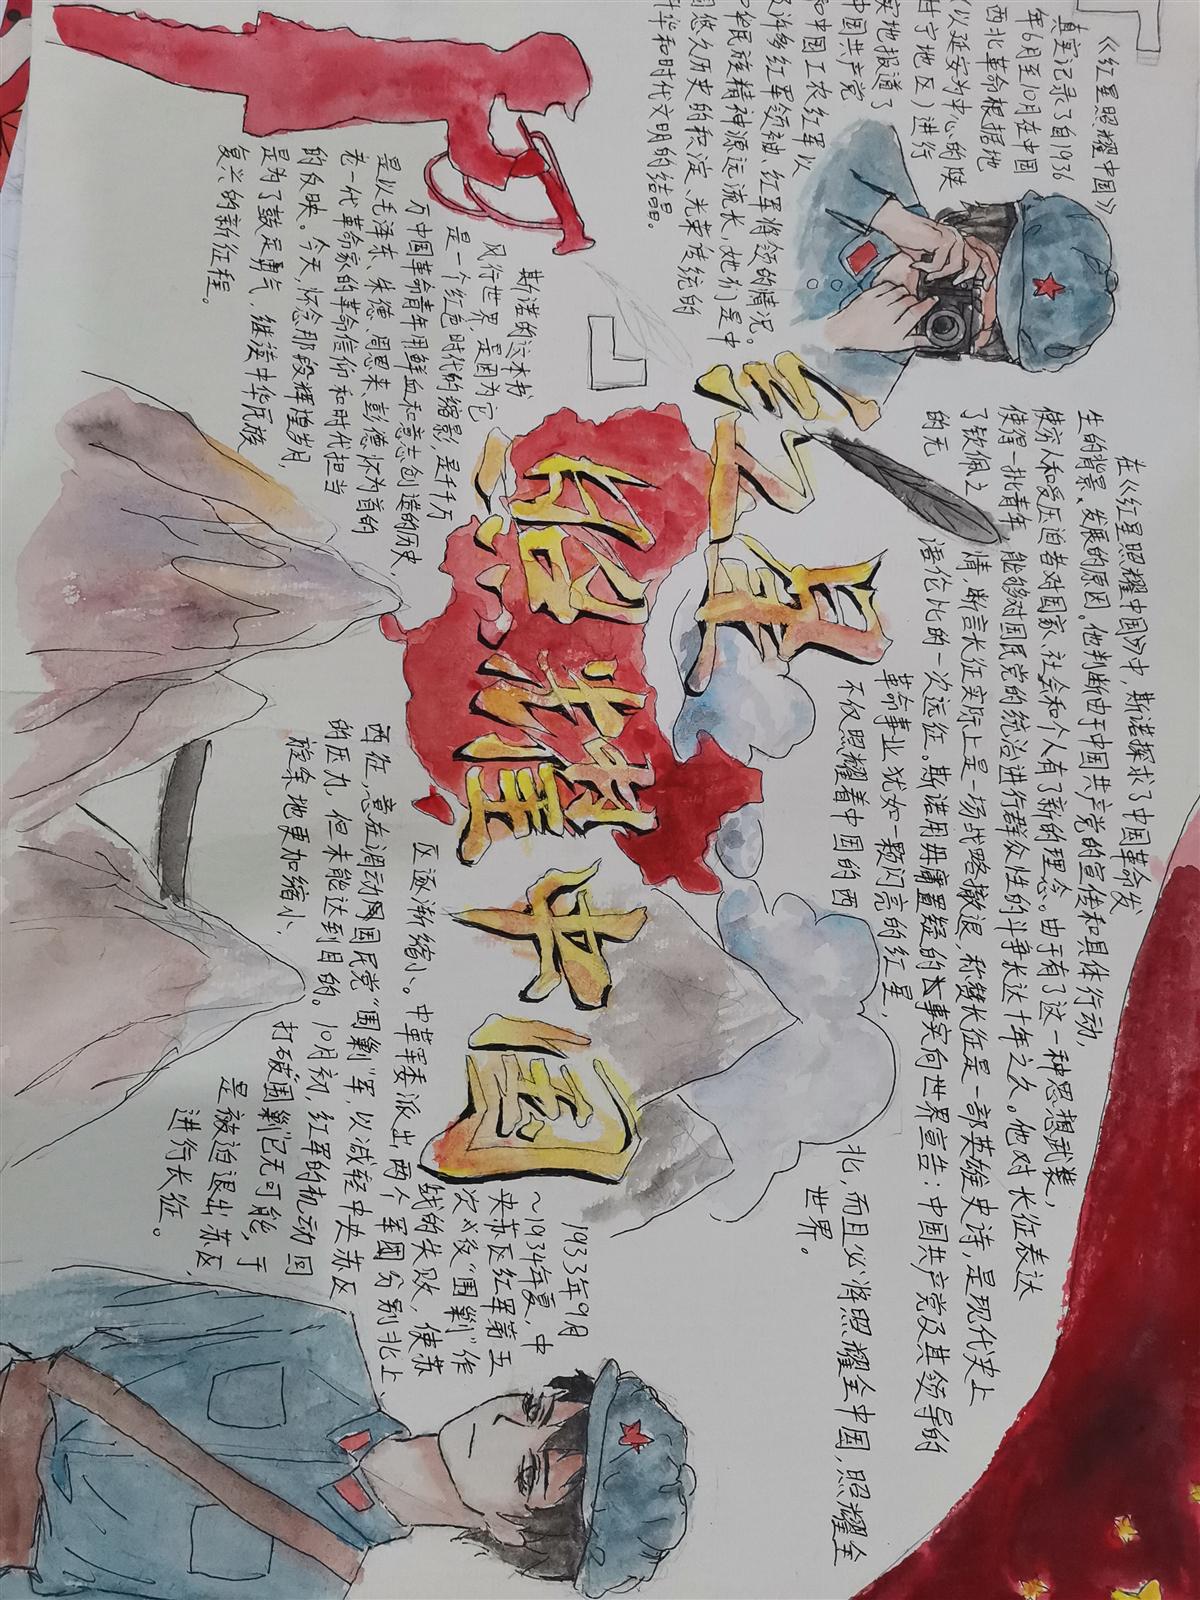 《红星照耀中国》
真实记录了自1936
年6月至10月在中国
西北革命根据地
(以延安为中心的陕
甘宁地区)进行
实地报道了
中国共产党
和中国工农红军以
及许多红军领袖、红军将领的情况。
中华民族精神源远流长,她们是中
国悠久历史的积淀、光荣传统的
升华和时代文明的结晶。
在《红星照耀中国》中,斯诺探求了中国革命发
生的背景、发展的原因。他判断由于中国共产党的宣传和具体行动,
使穷人和受压迫者对国家、社会和个人有了新的理念。由于有了这一种思想武装,
使得一批青年能够对国民党的统治进行群众性的斗争长达十年之久。他对长征表达
了钦佩之情,断言长征实际上是一场战略撤退,称赞长征是一部英雄史诗,是现代史上
的无与伦比的一次远征。斯诺用毋庸置疑的事实向世界宣告:中国共产党及其领导的
革命事业犹如一颗闪亮的红星,
不仅照耀着中国的西
北,而且必将照耀全中国,照耀全
世界。
红星
照耀中国
斯诺的这本书
风行世界,是因为它
是一个红色时代的缩影,是千千万
万中国革命青年用鲜血和意志创造的历史,
是以毛泽东、朱德、周恩来、彭德怀为首的
老一代革命家的革命信仰和时代担当
的反映。今天,怀念那段辉煌岁月,
是为了鼓足勇气,继续中华民族
复兴的新征程。
1933年9月
~1934年夏,中
央苏区红军第五
次反“围剿”作
战的失败,使苏
区逐渐缩小。中革军委派出两个军团分别北上、
西征,意在调动国民党“围剿”军,以减轻中央苏区
的压力,但未能达到目的。10月初,红军的机动回
旋余地更加缩小,打破“围剿”已无可能,于
是被迫退出苏区,
进行长征。